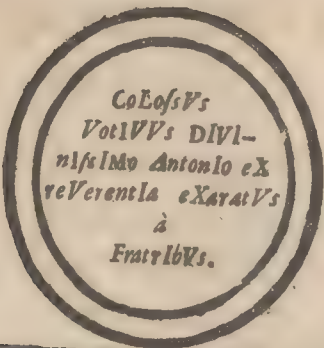 CoLoſsVs
VotIVVs DIVi-
niſsIMo AntonIo eX
reVerentIa eXaratVs
à
FratrIbVs.